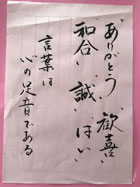 ありがとう 歓喜
和合 誠 はい
言葉は
心の足音である